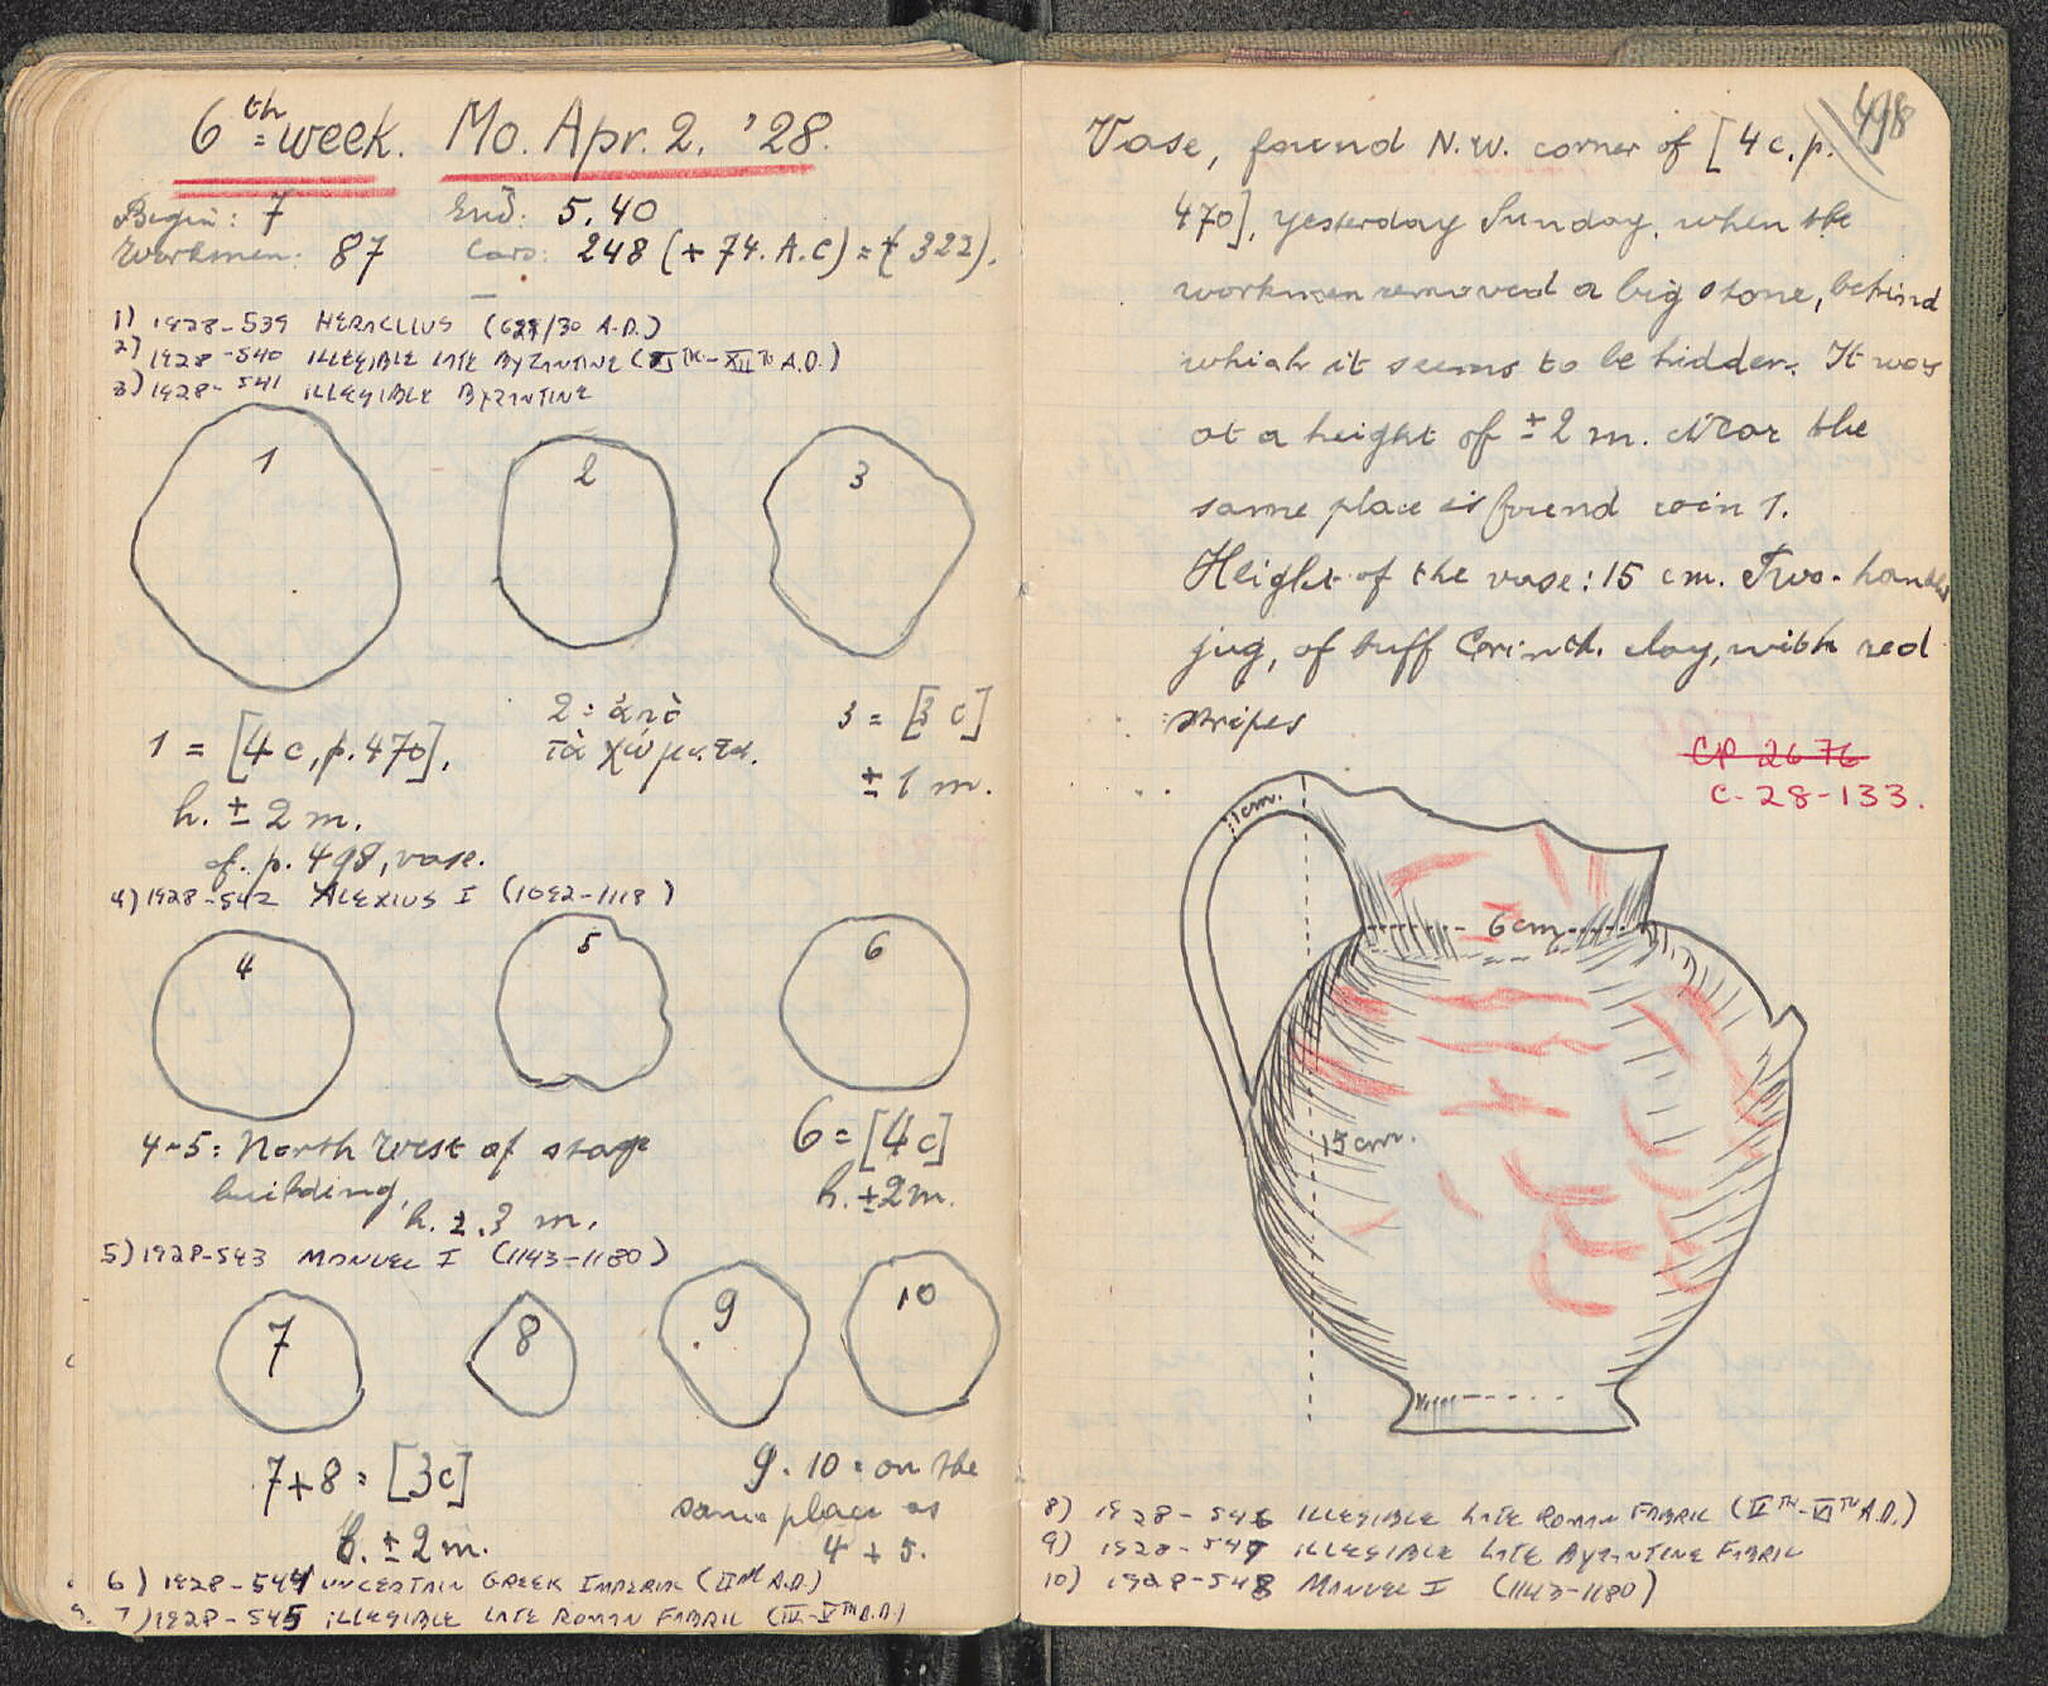 6th week. Mo. Apr. 2, '28.
Begin: 7 End: 5.40
Workmen: 87 Cars: 248 (+ 74. A.C) = (322).
1) 1928-539 HERACLIUS (629/30 A.D.)
2) 1928-540 ILLEGIBLE LATE BYZANTINE (XITH-XIITH A.D.)
3) 1928-541 ILLEGIBLE BYZANTINE
1 2 3
1 = [4c, p. 470].
h. ± 2 m.
cf. p. 498, vase.
2 = ἀπὸ
τὰ χώματα.
3 = [3 c]
± 1 m.
4) 1928-542 ALEXIUS I (1092-1118)
4 5 6
4-5: North West of stage
building,
h. ± 3 m.
6 = [4c]
h. ± 2 m.
5) 1928-543 MANUEL I (1143-1180)
7 8 9 10
7+8 = [3c]
h. ± 2 m.
9. 10 = on the
same place as
4 + 5.
6) 1928-544 UNCERTAIN GREEK IMPERIAL (IInd A.D.)
7) 1928-545 ILLEGIBLE LATE ROMAN FABRIC (IV-VTH A.D.)
498
Vase, found N.W. corner of [4c, p.
470], yesterday Sunday, when the
workmen removed a big stone, behind
which it seems to be hidden. It was
at a height of ± 2 m. Near the
same place is found coin 1.
Height of the vase: 15 cm. Two-handled
jug, of buff Corinth. clay, with red
stripes
CP 2676
C-28-133.
1 cm.
6 cm.
15 cm.
8) 1928-546 ILLEGIBLE LATE ROMAN FABRIC (VTH-VITH A.D.)
9) 1928-547 ILLEGIBLE LATE BYZANTINE FABRIC
10) 1928-548 MANUEL I (1143-1180)